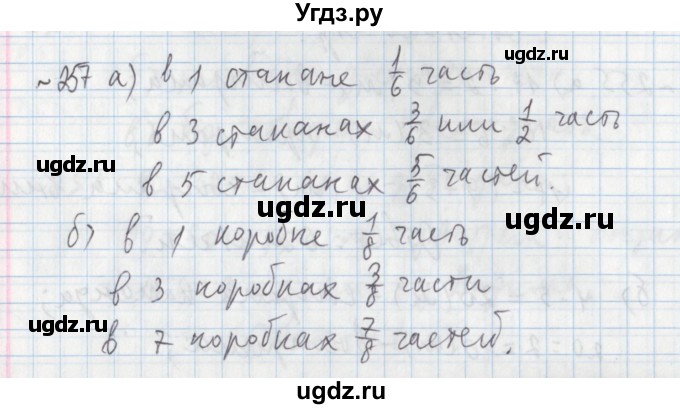 Угдз.ру
№257 а) в 1 стакане 1/6 часть
в 3 стаканах 3/6 или 1/2 часть
ugdz.ru
ugdz.ru
в 5 стаканах 5/6 частей.
ugdz.ru
б) в 1 коробке 1/8 часть
ugdz.ru
в 3 коробках 3/8 части
ugdz.ru
в 7 коробках 7/8 частей.
ugdz.ru